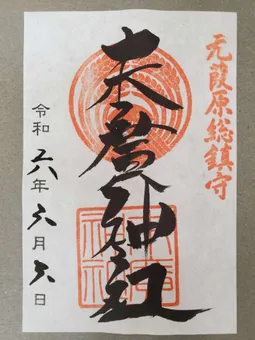 元葭原総鎮守
末廣神社
令和六年六月六日